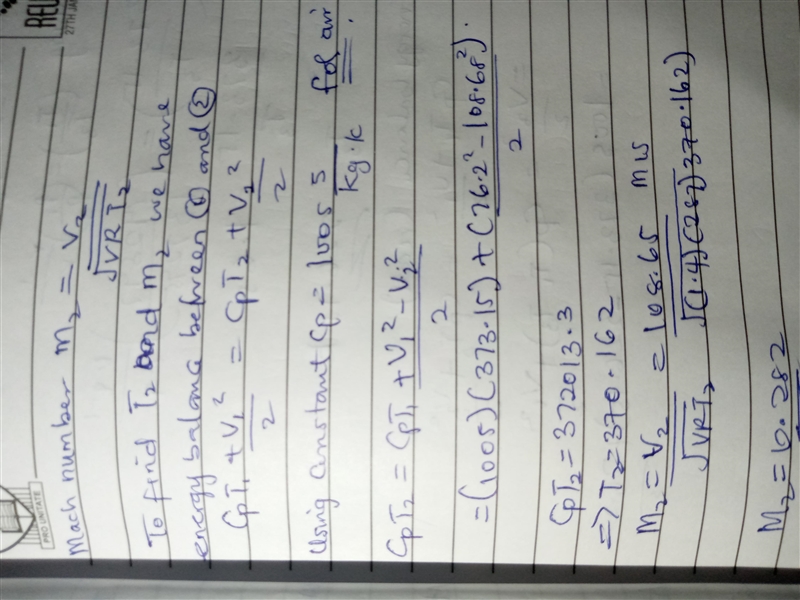 REU
27TH JA
PRO UNITATE
Mach number M₂ = V₂ / √γRT₂
To find T₂ and M₂ we have
energy balance between ① and ②
CpT₁ + V₁²/2 = CpT₂ + V₂²/2
Using constant Cp = 1005 J/kg·K for air
CpT₂ = CpT₁ + (V₁² - V₂²)/2
= (1005)(373.15) + (26.2² - 108.68²)/2.
CpT₂ = 372013.3
=> T₂ = 370.162
M₂ = V₂/√γRT₂ = 108.65 m/s / √(1.4)(287)370.162)
M₂ = 0.282